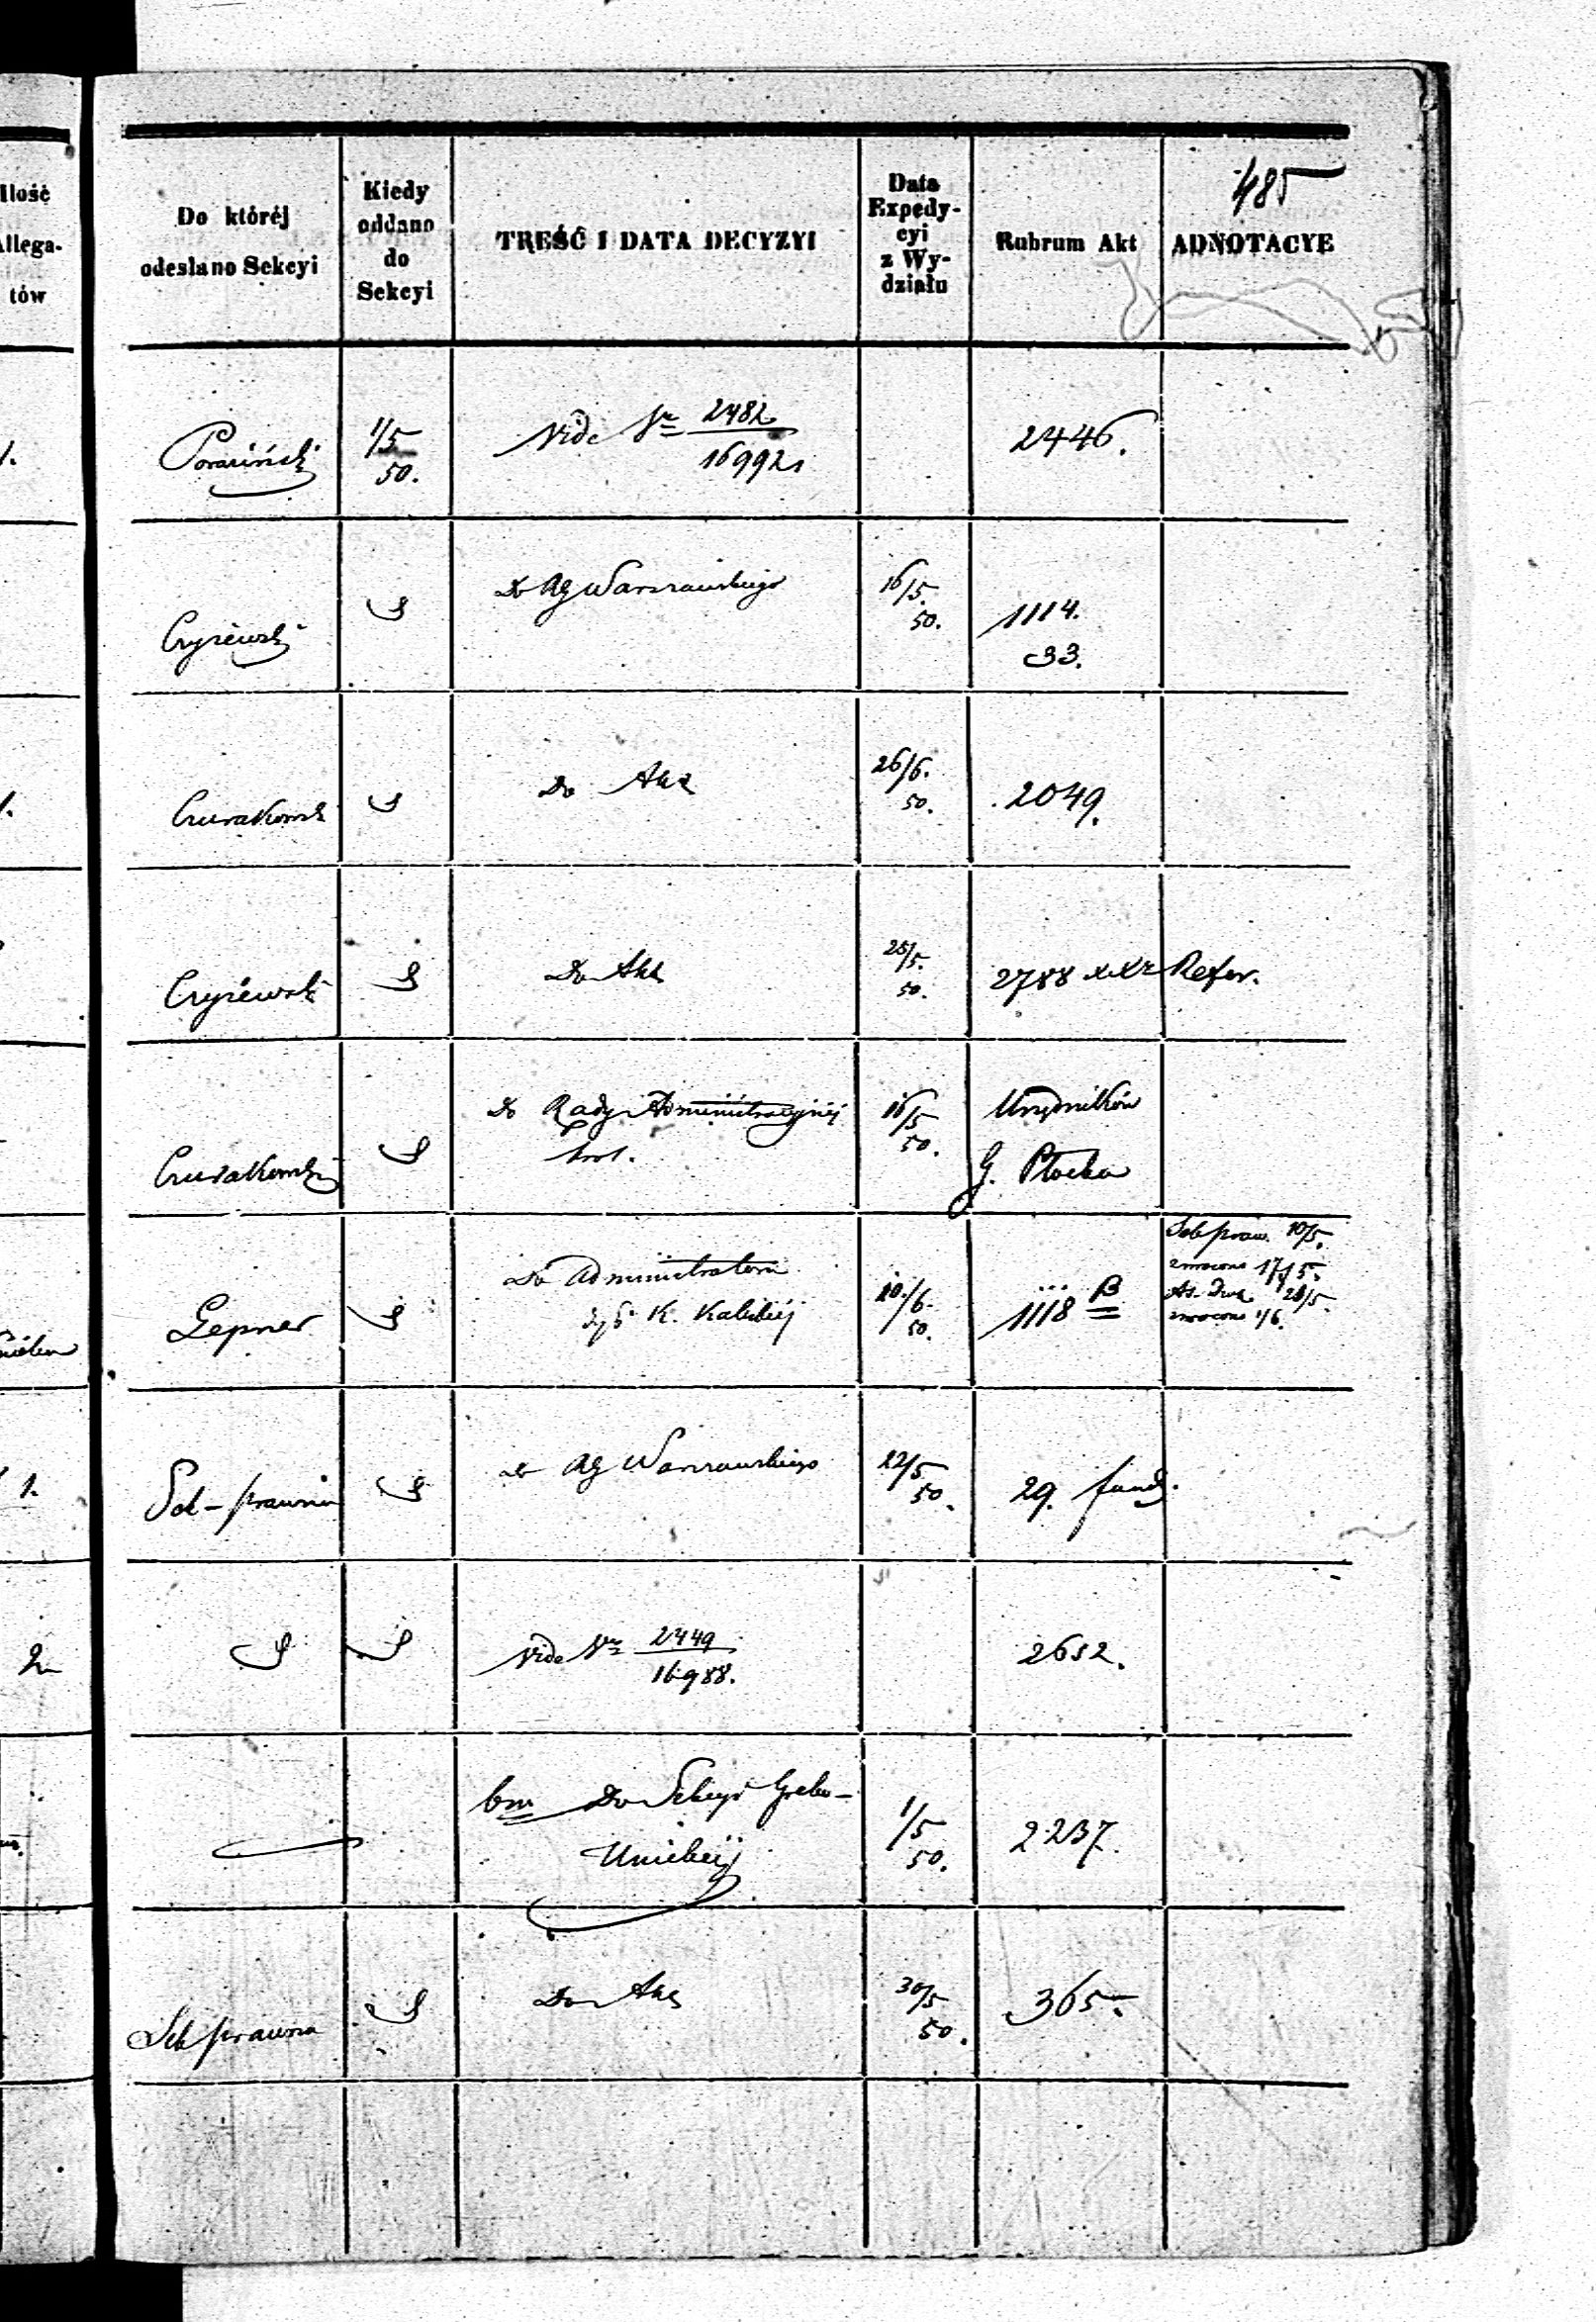 485
Ilość
Allega-
tów
Do któréj
odesłano Sekcyi
Kiedy
oddano
do
Sekcyi
TREŚĆ I DATA DECYZYI
Data
Expedy-
cyi
z Wy-
działu
Rubrum Akt
ADNOTACYE
1/5
50.
Vide Nr 2482
16992
2446.
Czyżewski
Do AG Warszawskiego
16/5
50.
1114.
33.
Do Akt
26/6.
50.
2049.
Czyżewski
Do Akt
25/5.
50.
2788 Refer.
Do Rady Administracyjnej
Król.
16/5
50.
Urzędników
G. Płocka
Lepner
Do Administratora
dyó K. Kaliskiej
10/6.
50.
1118 B
Sek praw. 10/5.
zwrócono 17/5.
28/5.
zwrócono 1/6.
1.
Sek-prawna
Do AG Warszawskiego
22/5
50.
29. fund.
2
Vide Nr 2449
16988.
2652.
bm Do Sekcyi Greko-
Unickiej
1/5
50.
2237.
Sek prawna
Do Akt
30/5
50.
365.